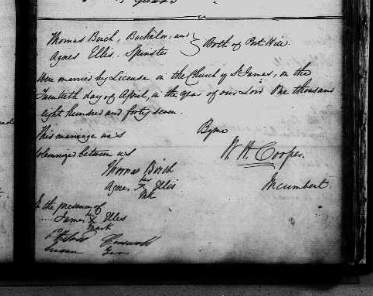 Thomas Birch, Bachelor, and } Both of Port Hope
Agnes Ellis, Spinster
Were married by License in the Church of St James, on the
Twentieth day of April, in the year of our Lord One thousand
eight hundred and forty seven.
This marriage was By me
solemnized between us W. H. Cooper,
Thomas Birch Incumbent.
Agnes Ellis
Mk
In the presence of
James Ellis
mark